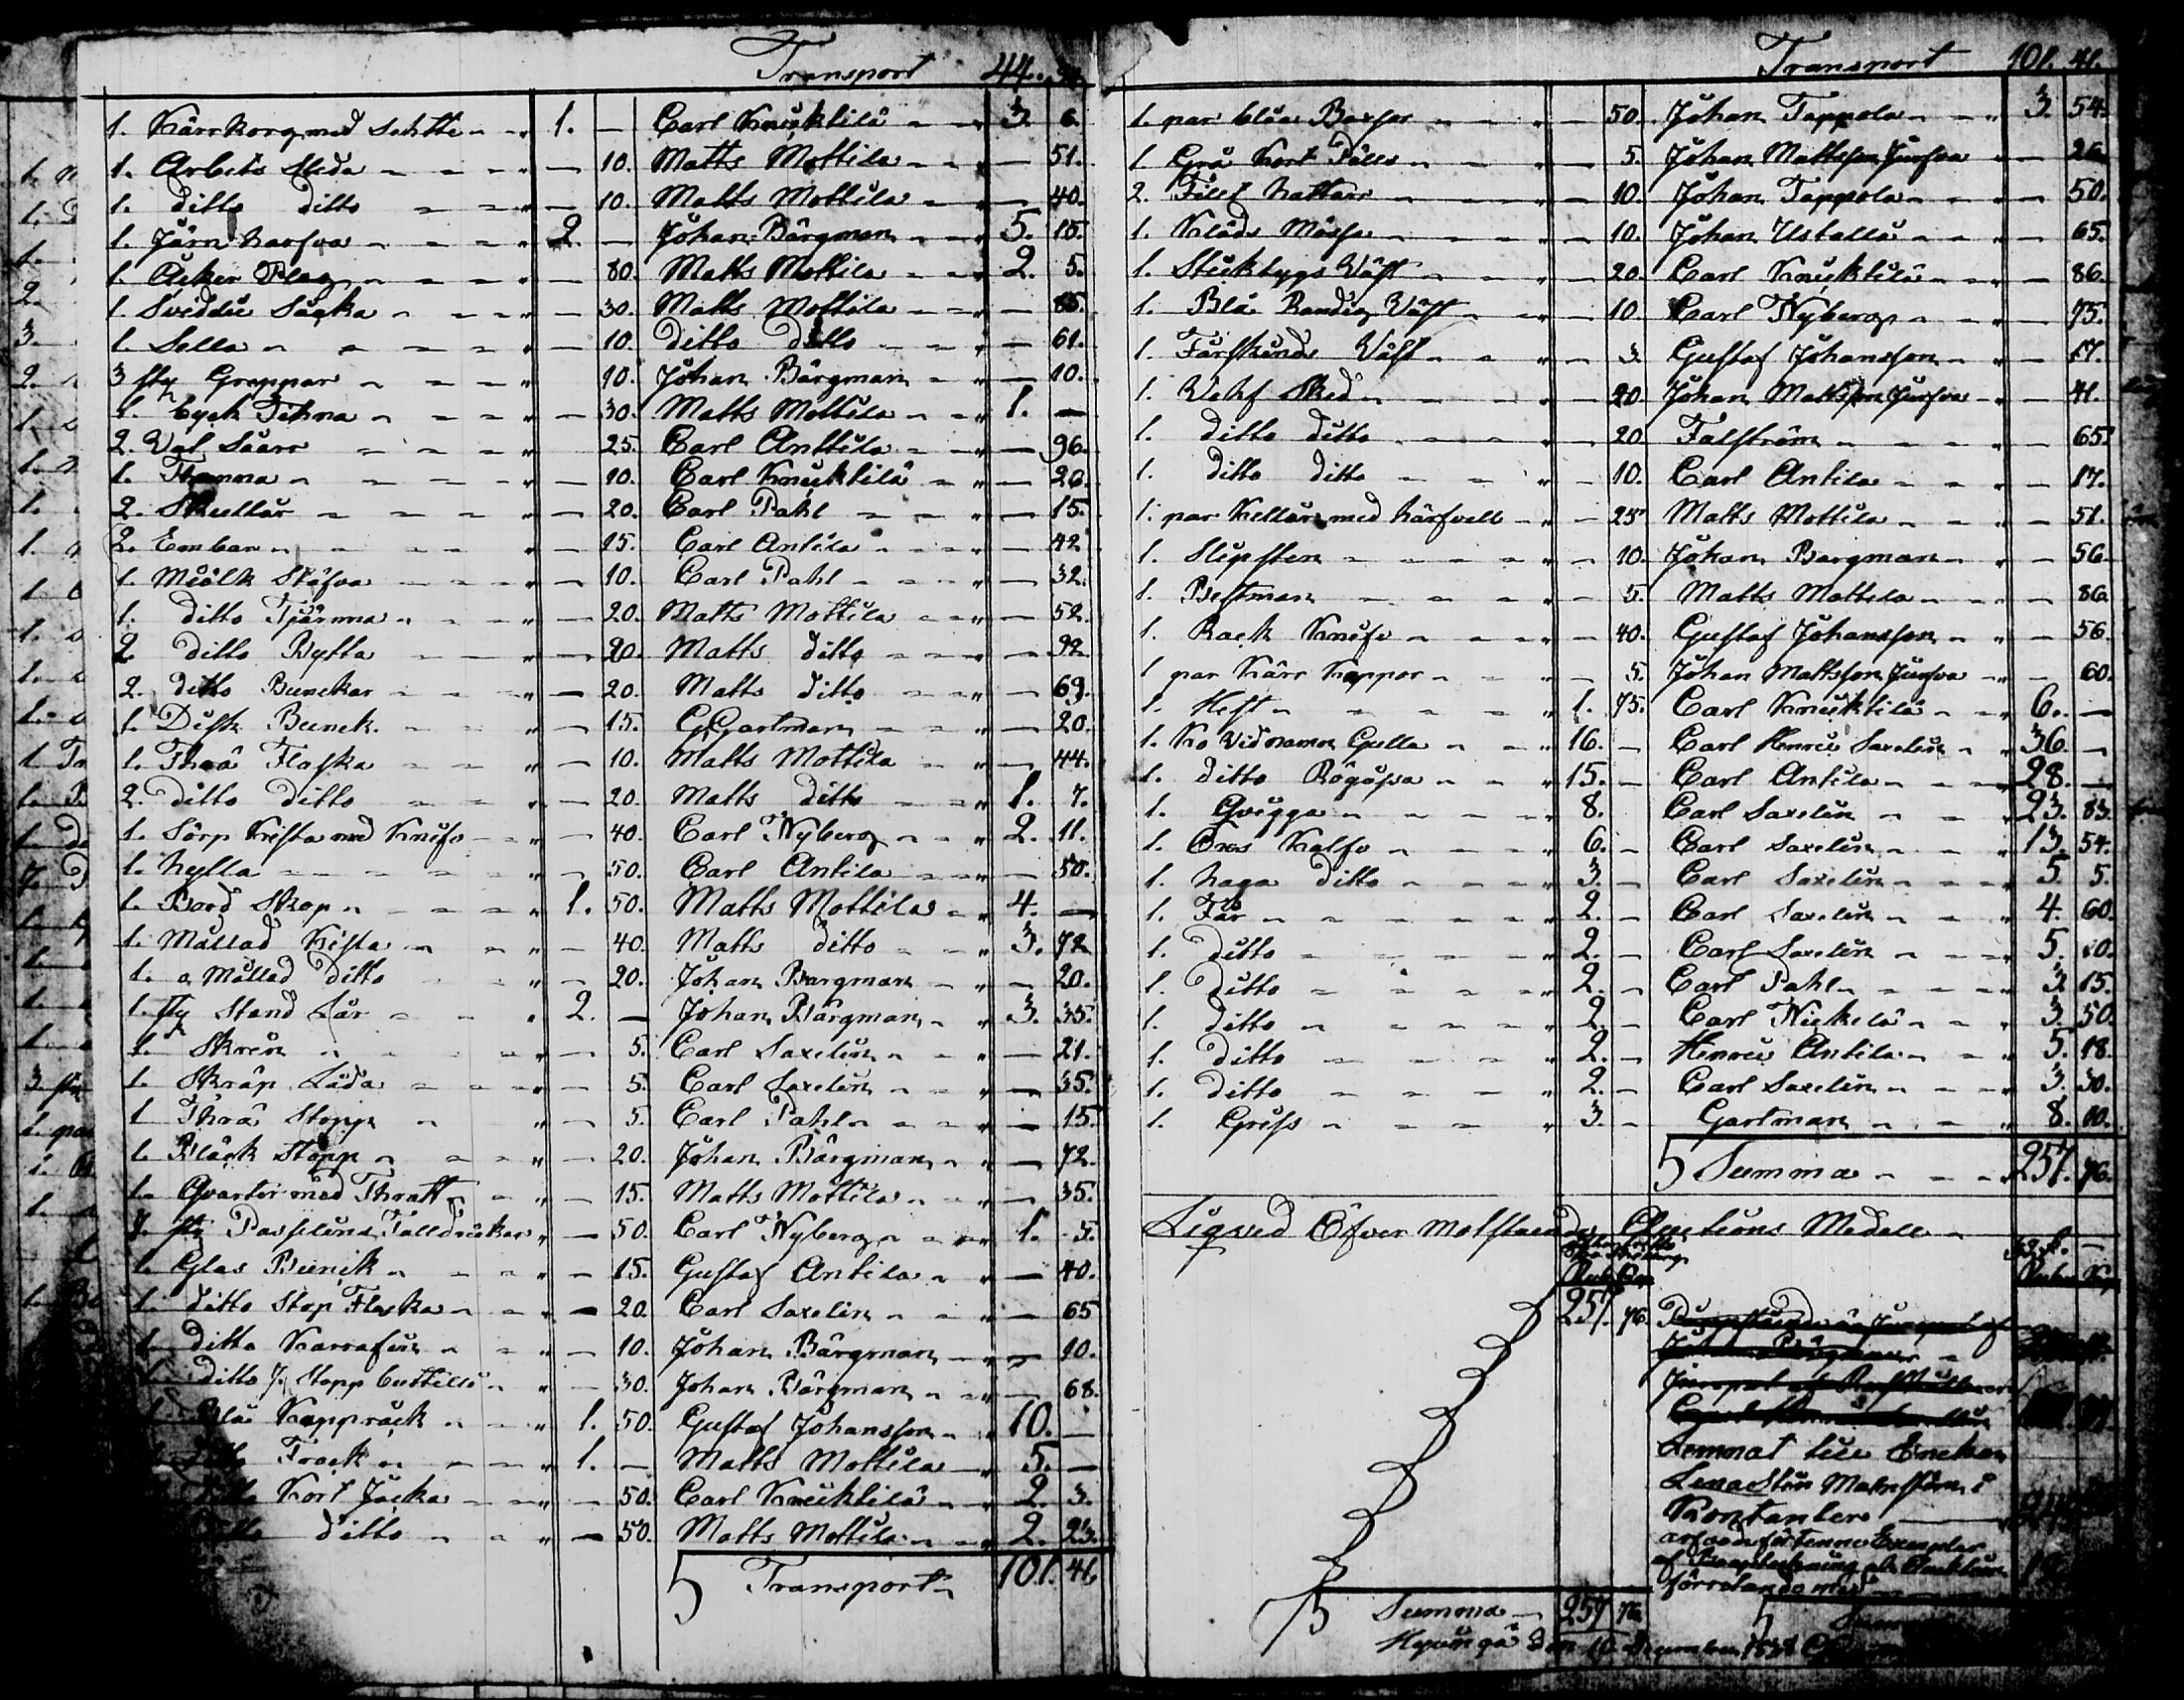 Transport 44. 34.
1. Kärrkorg med Schitti 1. — Carl Knuktila 3. 6.
1. Arbets Släda — 10. Matts Mottila — 51.
1. ditto ditto — 10. Matts Mottila — 40.
1. Järn harfva 2. — Johan Bärgman 5. 15.
1. Åcker Plog — 80. Matts Mottila 2. 5.
1. — 30. Matts Mottila — 85.
1. Sella — 10. ditto ditto — 61.
3 sty Greppar 10. Johan Bärgman — 10.
1. byck Tehna — 30. Matts Mottila 1. —
2. Vat Såar 25. Carl Anttila — 96.
1. — 10. Carl Knuktilä — 26.
2. Skullar — 20. Carl Pahl — 15.
2. Embar — 15. Carl Antila — 42
1. Miölk Stäfva — 10. Carl Pahl — 32.
1. ditto Tjärnna — 20. Matts Mottila — 52.
2 ditto Bytta — 20. Matts ditto — 92.
2. ditto Bunckar — 20. Matts ditto — 69.
1. Disk Bunck — 15. G Gartman — 20.
1. Thrä Flaska — 10. Matts Mottila — 44.
2. ditto ditto — 20. Matts ditto 1. 7.
1. Sörp Kista med Knifv — 40. Carl Nyberg 2. 11.
1. hylla — 50. Carl Antila — 50.
1. Bord Skop 1. 50. Matts Mottila 4. —
1. Mållad Kista — 40. Matts ditto 3. 72
1. o Mållad ditto — 20. Johan Bargman — 20.
1. sty Stand Lår 2. — Johan Bärgman 3. 35.
1. Skrin — 5. Carl Saxelin — 21.
1. Skräp Låda — 5. Carl Saxelin — 35.
1 Thrä Stopp — 5. Carl Pahl — 15.
1. Bläck Stopp — 20. Johan Bärgman — 72.
1. Qvarter med Thratt — 15. Matts Mottila — 35.
7. sty Posslins Talldrickar — 50. Carl Nyberg 1. 5.
1. Glas Bunck — 15. Gustaf Antila — 40.
1. ditto Stop Flaska — 20. Carl Saxelin — 65
1. ditto Karrafin — 10. Johan Bärgman — 10.
1. ditto J. Stopp buttilli — 30. Johan Bärgman — 68.
1. Blå Kappråck 1. 50. Gustaf Johansson 10. —
Frack 1. — Matts Mottila 5. —
ditto Kort Jacka — 50. Carl Knuktilä 2. 3.
ditto ditto — 50. Matts Mottila 2. 23.
Transport 101. 41.
Transport 101. 41.
1. par blåa Boxsor — 50. Johan Tappola 3. 54.
1 Grå Kort — 5. Johan Mattsson Jusva — 26.
2. Filt hattar — 10. Johan Tappola — 50.
1. Kläds Mössa — 10. Johan Ustallo — 65.
1. Stucktygs Väst — 20. Carl Knuktilä — 86.
1. Blå Randig Väst — 10. Carl Nyberg — 75.
1. Fårskinds Väst — 3. Gustaf Johansson — 17.
1. Vähf Sked — 20. Johan Mattsson Jusva — 41.
1. ditto ditto — 20 Falström — 65.
1. ditto ditto — 10. Carl Antila — 17.
1. par med — 25 Matts Mottila — 51.
1. Slipsten — 10. Johan Bargman — 56.
1. Bestman — 5. Matts Mottila — 86.
1. Rack Knifv — 40. Gustaf Johansson — 56.
1 par Kärr Kappor — 5. Johan Mattsson Jusva — 60.
1. Hest 1. 75. Carl Knuktilä 6. —
1. Ko Vid namn Gulla 16. — Carl Henric Saxelin 36. —
1. ditto Rögössa 15. — Carl Antila 28. —
1. Qvigga 8. Carl Saxelin 23. 83.
1. Oxs Kalfv 6. — Carl Saxelin 13. 54.
1. haga ditto 3. — Carl Saxelin 5. 5.
1. Får 2. — Carl Saxelin 4. 60.
1. ditto 2. — Carl Saxelin 5. 20.
1. ditto 2. — Carl Pahl 3. 15.
1. ditto 2. — Carl Nickilä 3. 50.
1. ditto 2. — Henric Antila 5. 18.
1. ditto 2. — Carl Saxelin 3. 30.
1. Griss 3. — Gartman 8. 10.
Summa 257. 76.
Liqvid Öfver Motstående Auctions Medell
257. 76.
Lemnat till Enckan
Lena Stina Malmström i
Kontanter
Summa 257 76
Summa
Hyvingä den 10 December 1838